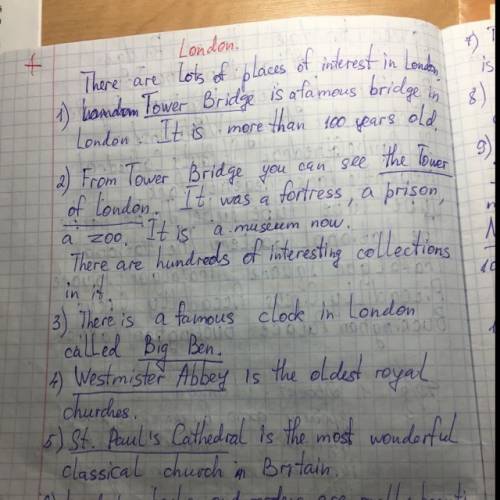 London.
There are lots of places of interest in London.
1) Tower Bridge is a famous bridge in
London. It is more than 100 years old.
2) From Tower Bridge you can see the Tower
of London. It was a fortress, a prison,
a zoo. It is a museum now.
There are hundreds of interesting collections
in it.
3) There is a famous clock in London
called Big Ben.
4) Westmister Abbey is the oldest royal
churches.
5) St. Paul's Cathedral is the most wonderful
classical church in Britain.
is
8)
9)